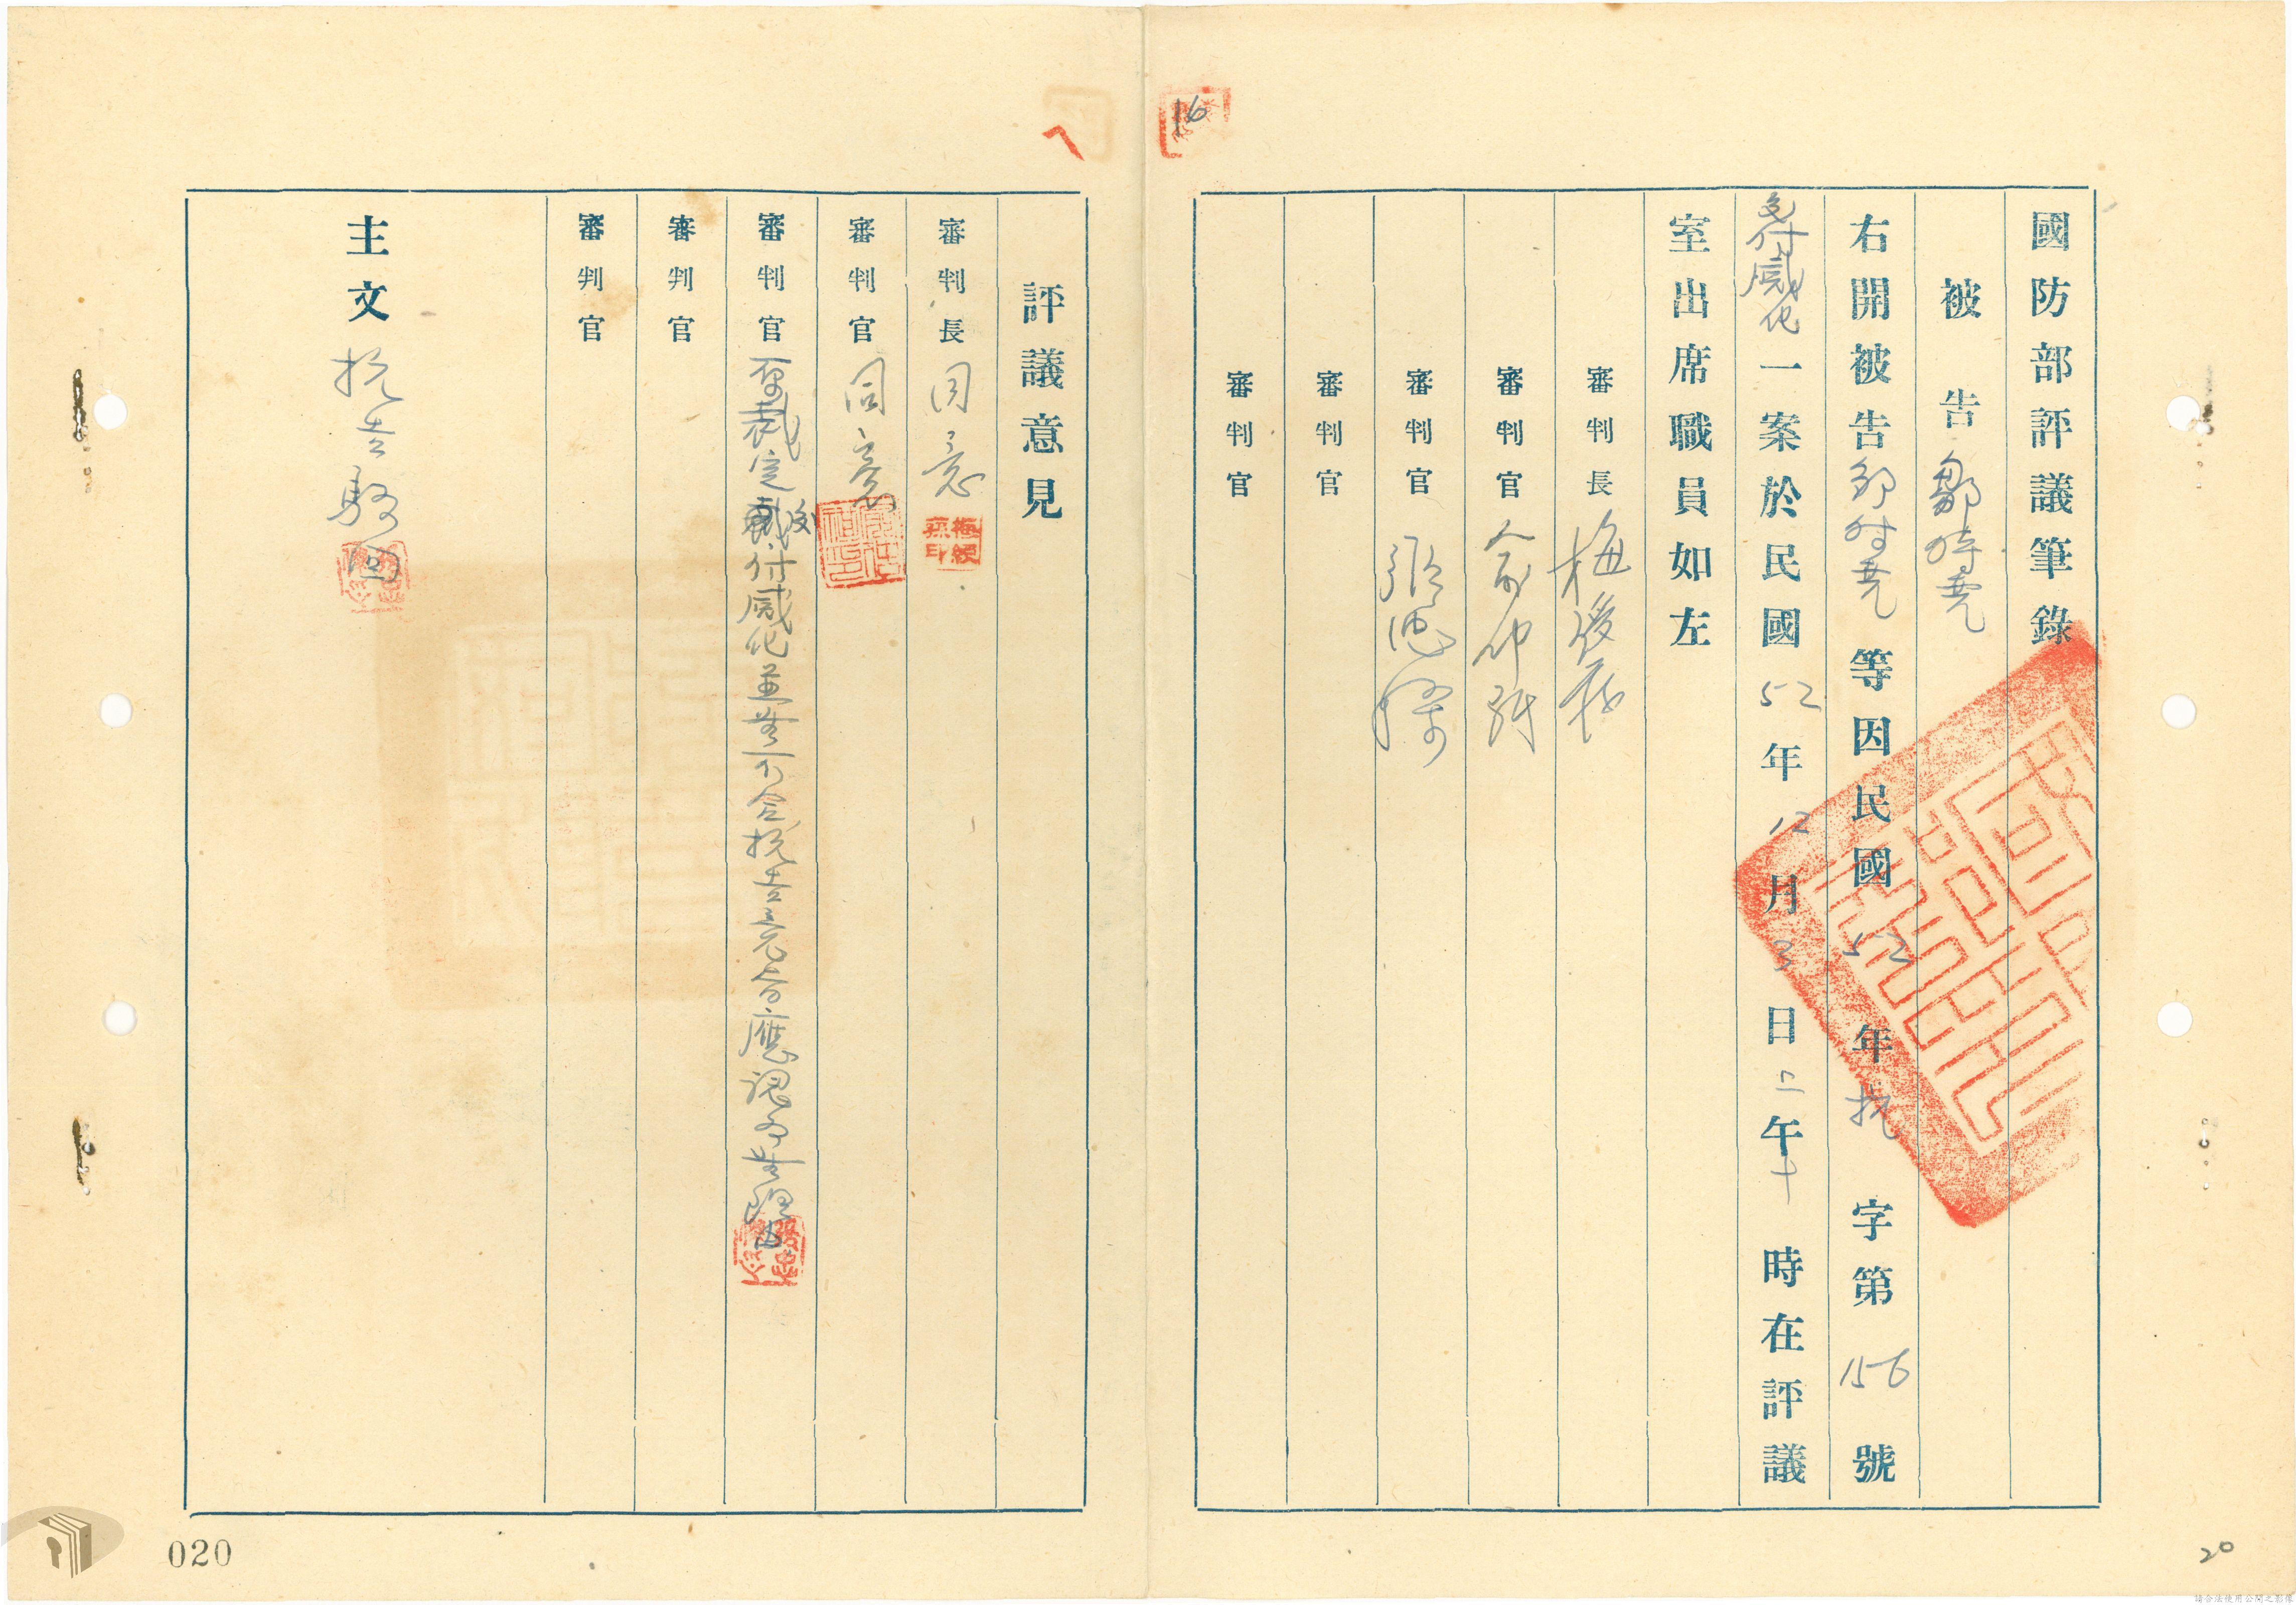 16
國防部評議筆錄
被告 鄒時堯
右開被告鄒時堯等因民國52年抗字第156號
交付感化一案於民國52年12月3日上午十時在評議
室出席職員如左
審判長 梅綬蓀
審判官 俞仲
審判官 張
審判官
審判官
評議意見
審判長 同意
審判官 同意
審判官 原裁定裁交付感化並無不合抗告意旨應認為無理由
審判官
審判官
主文 抗告駁回
020
20
請合法使用公開之影像